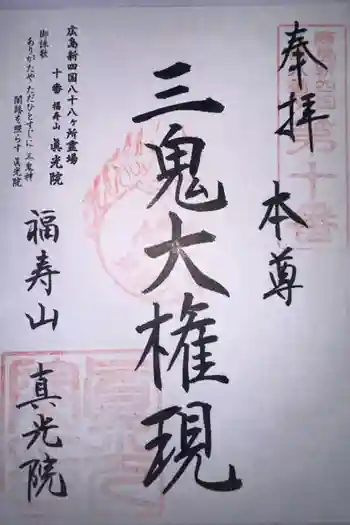 奉拝
第十番
本尊
三鬼大権現
広島新四国八十八ヶ所霊場
十番 福寿山 眞光院
御詠歌
ありがたや ただひとすじに 三鬼神
闇路を照らす 眞光院
福寿山
真光院